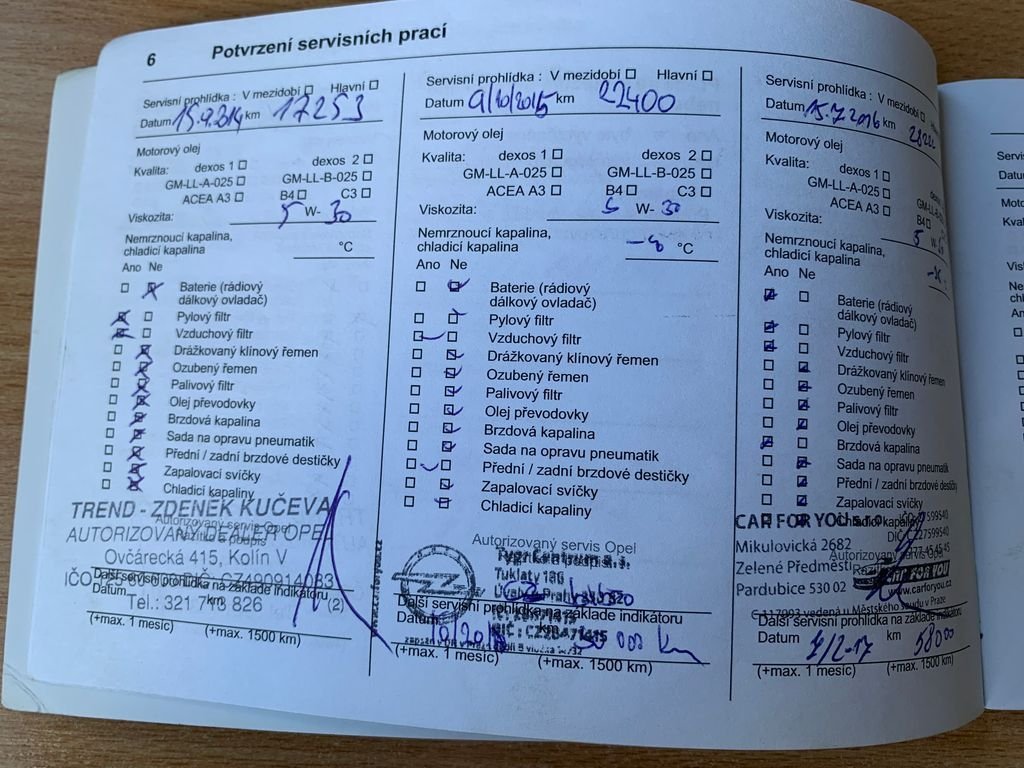 6 Potvrzení servisních prací
Servisní prohlídka : V mezidobí Hlavní
Datum 15.9.2014 km 17253
Motorový olej
Kvalita: dexos 1 dexos 2
GM-LL-A-025 GM-LL-B-025
ACEA A3 B4 C3
Viskozita: 5 W- 30
Nemrznoucí kapalina,
chladicí kapalina °C
Ano Ne
Baterie (rádiový
dálkový ovladač)
Pylový filtr
Vzduchový filtr
Drážkovaný klínový řemen
Ozubený řemen
Palivový filtr
Olej převodovky
Brzdová kapalina
Sada na opravu pneumatik
Přední / zadní brzdové destičky
Zapalovací svíčky
Chladicí kapaliny
TREND - ZDENĚK KUČEVA
AUTORIZOVANÝ DEALER OPEL
Autorizovaný servis Opel
Razítko a podpis
Ovčárecká 415, Kolín V
Další servisní prohlídka na základe indikátoru
Datum km (2)
Tel.: 321 713 826
(+max. 1 mesíc) (+max. 1500 km)
Servisní prohlídka : V mezidobí Hlavní
Datum 9/10/2015 km 22400
Motorový olej
Kvalita: dexos 1 dexos 2
GM-LL-A-025 GM-LL-B-025
ACEA A3 B4 C3
Viskozita: 5 W- 30
Nemrznoucí kapalina,
chladicí kapalina -8 °C
Ano Ne
Baterie (rádiový
dálkový ovladač)
Pylový filtr
Vzduchový filtr
Drážkovaný klínový řemen
Ozubený řemen
Palivový filtr
Olej převodovky
Brzdová kapalina
Sada na opravu pneumatik
Přední / zadní brzdové destičky
Zapalovací svíčky
Chladicí kapaliny
Autorizovaný servis Opel
Tuklaty 186
Další servisní prohlídka na základe indikátoru
Datum km
(+max. 1 mesíc) (+max. 1500 km)
Servisní prohlídka : V mezidobí
Datum 15.7.2016 km
Motorový olej
Kvalita: dexos 1
GM-LL-A-025
ACEA A3 B4
Viskozita: 5 W-
Nemrznoucí kapalina,
chladicí kapalina
Ano Ne
Baterie (rádiový
dálkový ovladač)
Pylový filtr
Vzduchový filtr
Drážkovaný klínový řemen
Ozubený řemen
Palivový filtr
Olej převodovky
Brzdová kapalina
Sada na opravu pneumatik
Přední / zadní brzdové destičky
Zapalovací svíčky
Chladicí kapaliny
CAR FOR YOU
Mikulovická 2682
Zelené Předměstí
Pardubice 530 02
www.carforyou.cz
C 117993 vedená u Městského soudu v Praze
Další servisní prohlídka na základe indikátoru
Datum km 58000
(+max. 1 mesíc) (+max. 1500 km)